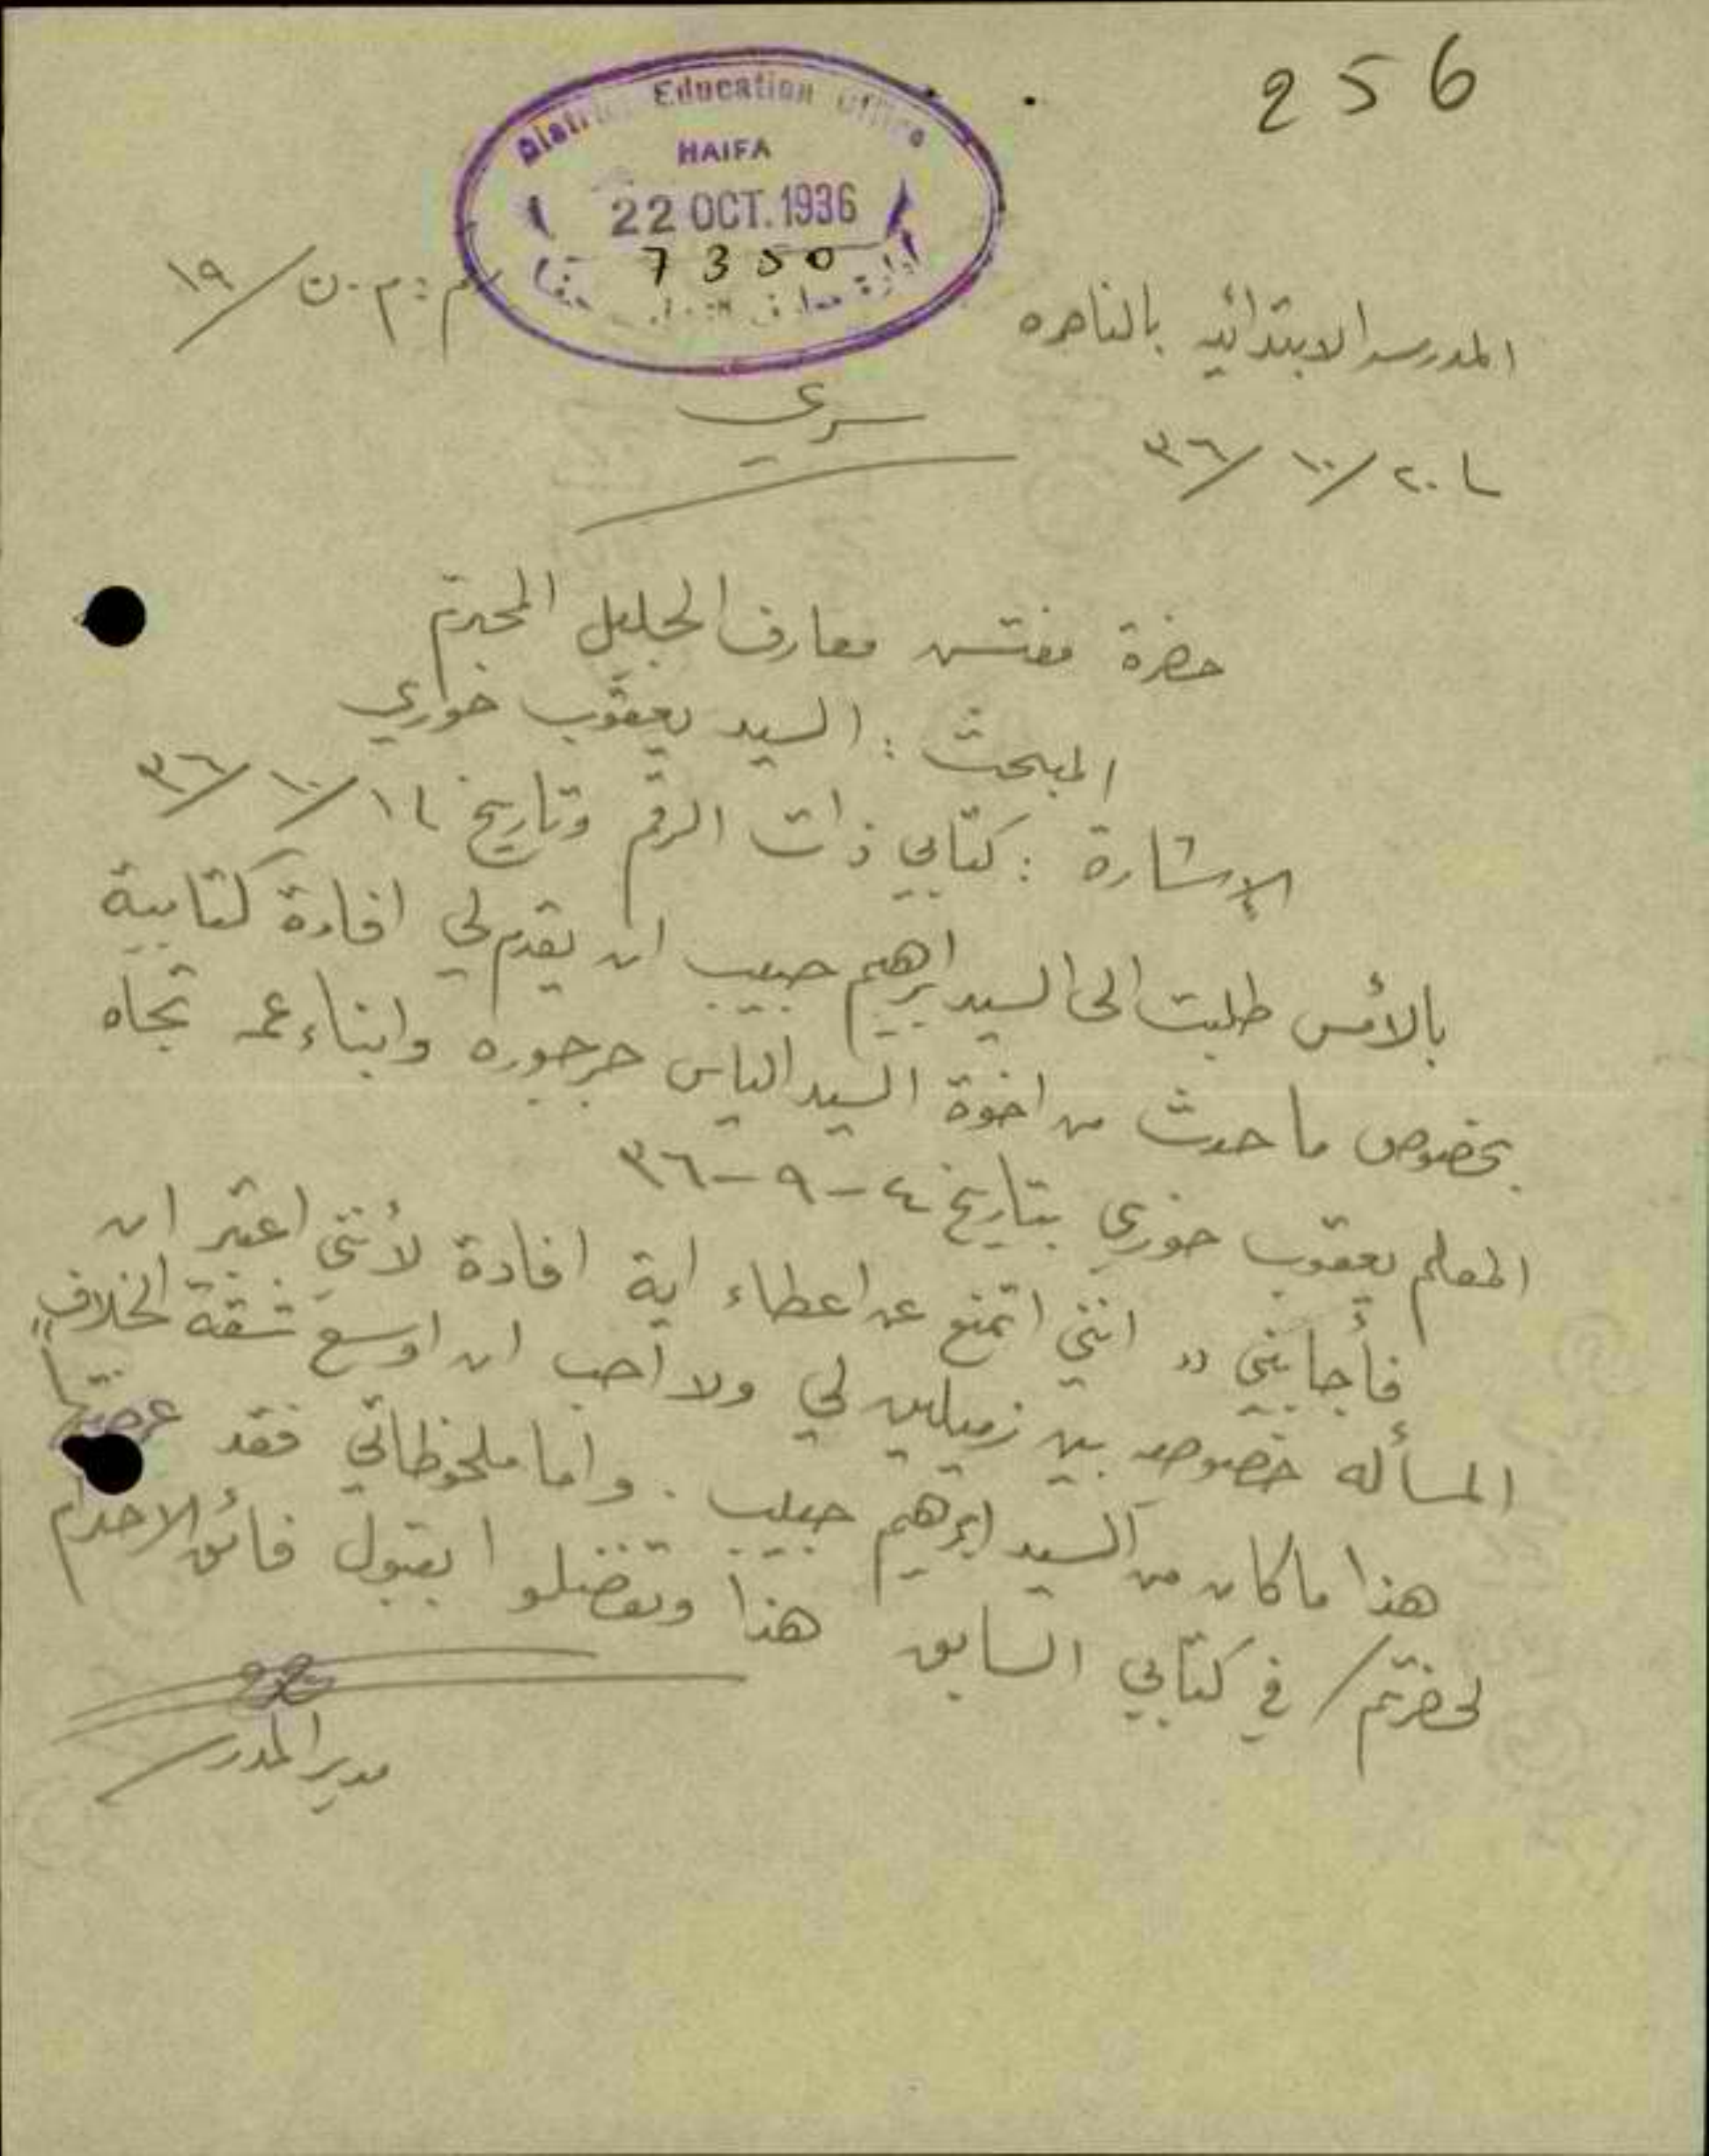 256
District Education Office
HAIFA
22 OCT. 1936
7350
م.ن/١٩
المدرسه الابتدائيه بالناصره
سري
٢٠/١٠/٣٦
حضرة مفتش معارف الجليل المحترم
المبحث : السيد يعقوب خوري
الإشارة : كتابي ذات الرقم وتاريخ ١٠/٣٦
بالأمس طلبت الى السيد ابرهيم حبيب ان يقدم لي افادة كتابية
بخصوص ما حدث من اخوة السيد الياس جرجوره وابناء عمه تجاه
المعلم يعقوب خوري بتاريخ ٤-٩-٣٦
فأجابني " انني اتمنع عن اعطاء اية افادة لأنني اعتبر ان
المسأله خصوصيه بين زميلين لي ولا أحب ان اوسع شقة الخلاف "
هذا ما كان من السيد ابرهيم حبيب . واما ملحوظاتي فقد عرضتها
لحضرتكم في كتابي السابق هذا وتفضلوا بقبول فائق الاحترام
مدير المدرسه